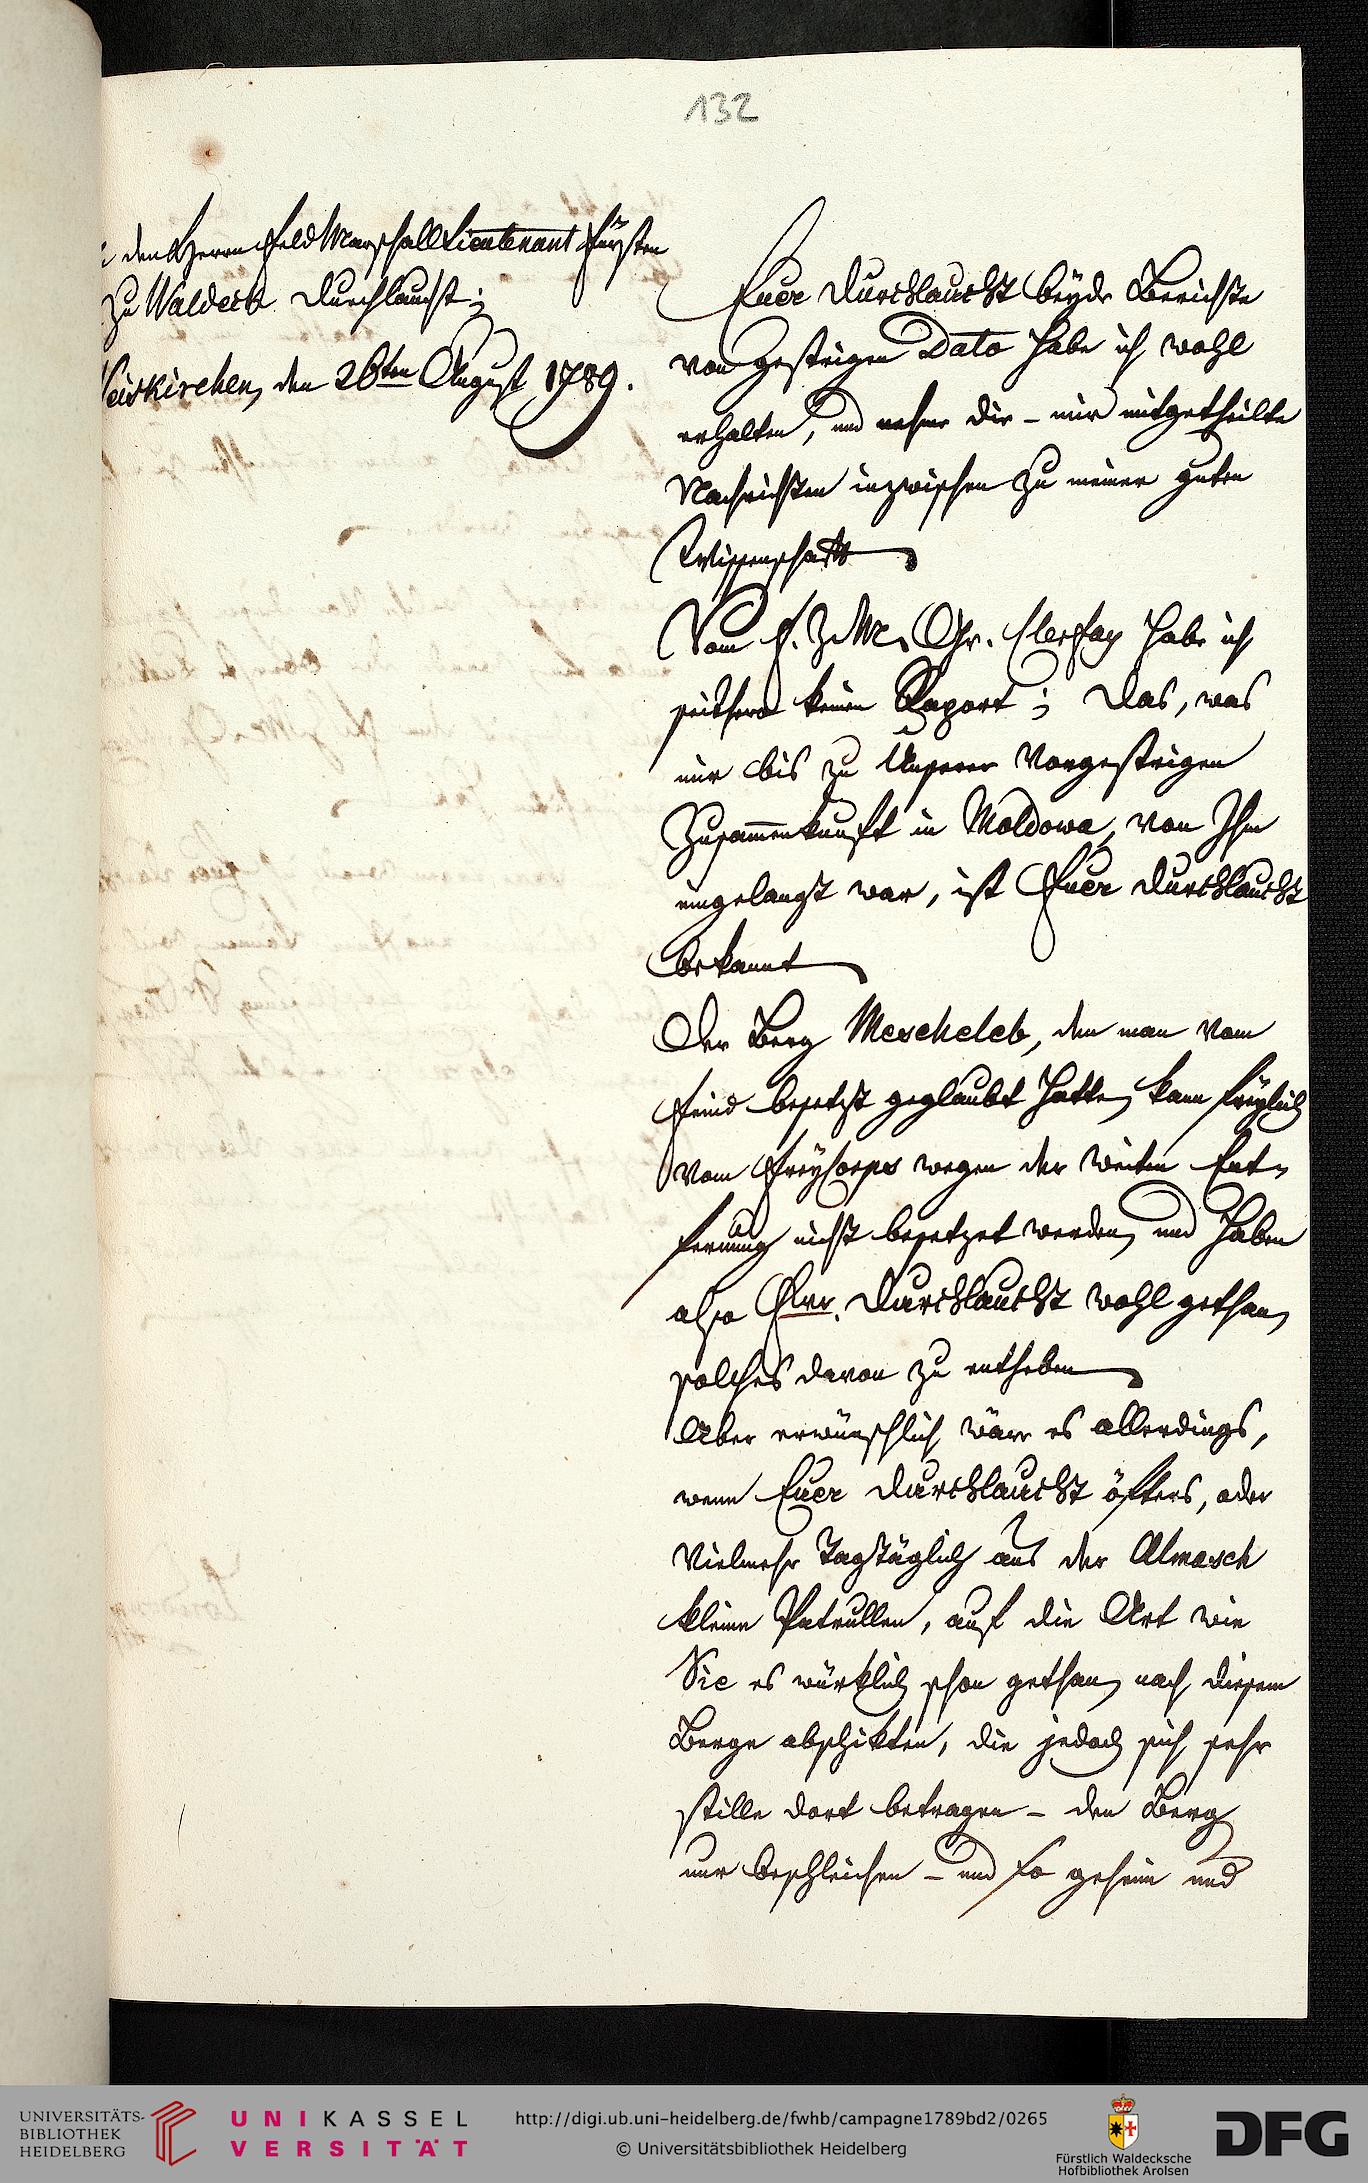 132
den Herrn Feld Marschall Lieutenant Fürsten
zu Waldeck Durchlaucht;
eiskirchen, den 26ten August 1789.
Euer Durchlaucht beyde Berichte
von gestrigen Dato habe ich wohl
erhalten, und nehme die – mir mitgetheilte
Nachrichten inzwischen zu meiner guten
Wissenschaft
Vom F. Z. M. Gr. Clerfay habe ich
seithero keinen Raport; Das, was
mir bis zu Unserer Vorgestrigen
Zusammenkunft in Moldowa, von Ihm
eingelangt war, ist Euer Durchlaucht
bekannt
Der Berg Mescheleb, den man vom
Feind besetzt geglaubt hatte, kann freylich
vom FreyCorps wegen der weiten Ent-
fernung nicht besetzet werden, und haben
also Eur. Durchlaucht wohl gethan,
solches davon zu entheben
Aber erwünschlich wäre es allerdings,
wenn Euer Durchlaucht öfters, oder
Vielmehr Tagtäglich aus der Almasch
kleine Patrullen, auf die Art wie
Sie es würklich schon gethan, nach diesem
Berge abschikten, die jedoch sich sehr
stille dort betragen – den Berg
nur beschleichen – und so geheim und
UNIVERSITÄTS-
BIBLIOTHEK
HEIDELBERG
UNIKASSEL
VERSITÄT
http://digi.ub.uni-heidelberg.de/fwhb/campagne1789bd2/0265
© Universitätsbibliothek Heidelberg
Fürstlich Waldecksche
Hofbibliothek Arolsen
DFG